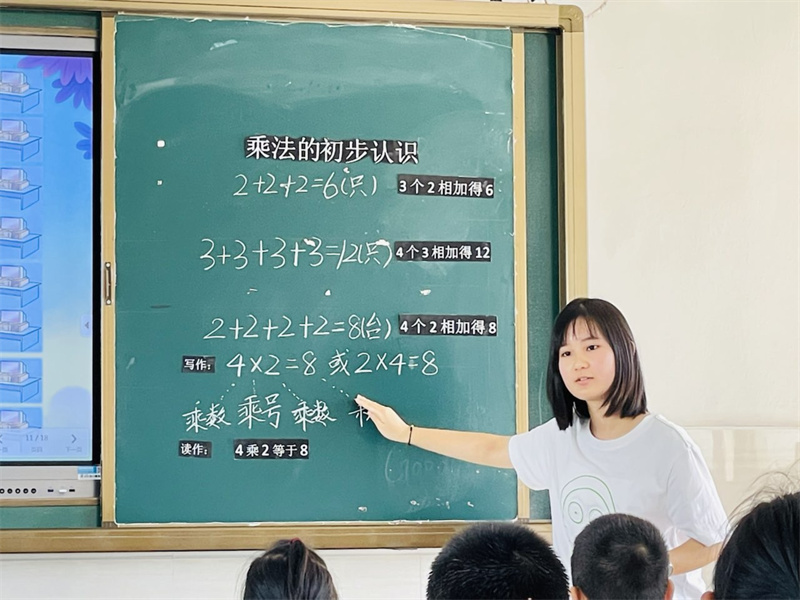 乘法的初步认识
2+2+2=6(只) 3个2相加得6
3+3+3+3=12(只) 4个3相加得12
2+2+2+2=8(台) 4个2相加得8
写作: 4×2=8 或 2×4=8
乘数 乘号 乘数
读作: 4乘2等于8
11/16